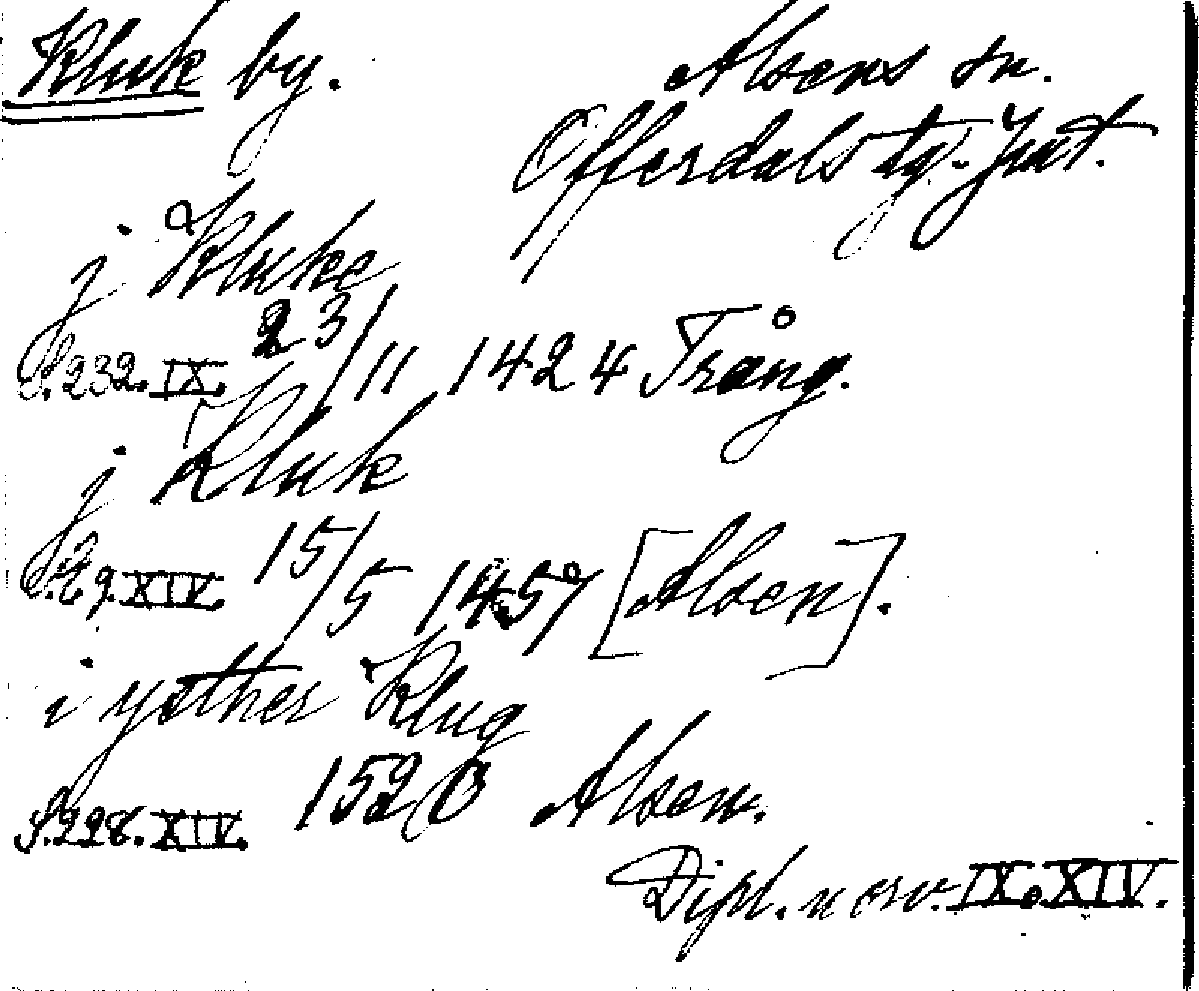 Kluk by. Alsens sn.
Offerdals tg. Jmt.
j Kluke
S. 232. IX. 23/11 1424 Trång.
j Kluk
S. 79. XIV. 15/5 1457 [Alsen].
i ysther Klug
S. 228. XIV. 1520 Alsen.
Dipl. norv. IX. XIV.